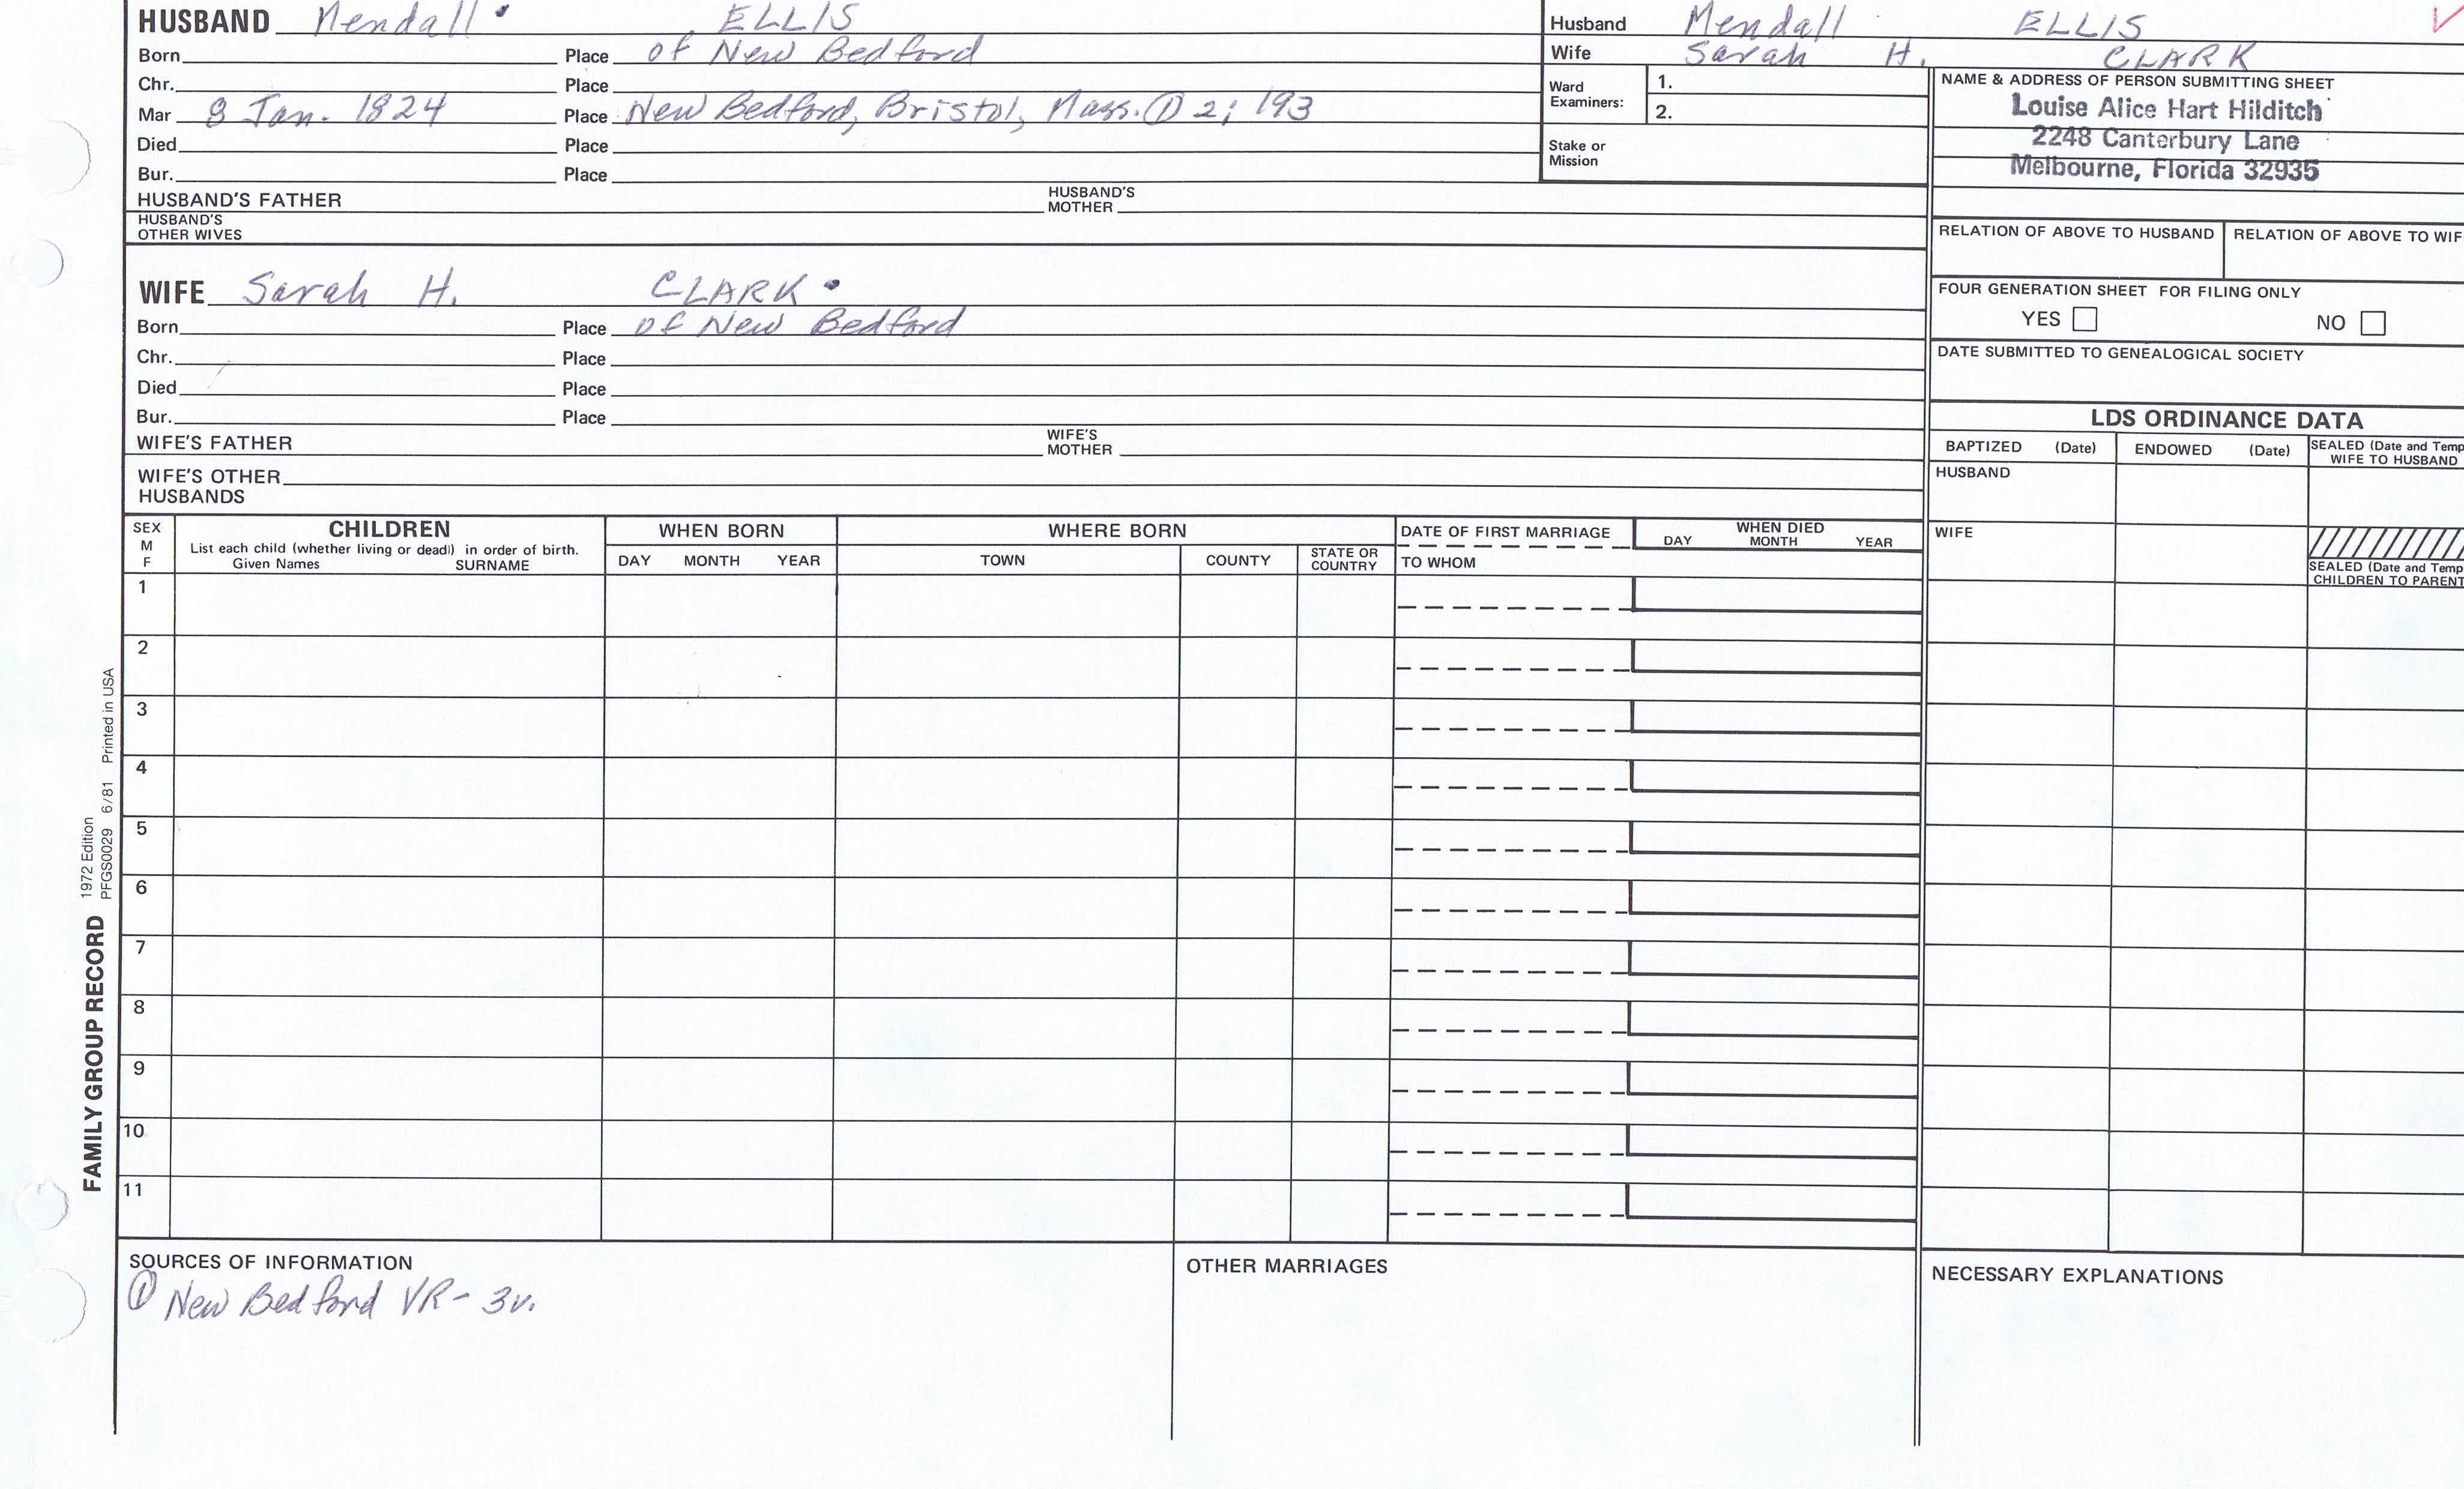 HUSBAND Mendall ELLIS
Born Place of New Bedford
Chr. Place
Mar 8 Jan. 1824 Place New Bedford, Bristol, Mass. ① 2; 193
Died Place
Bur. Place
HUSBAND'S FATHER HUSBAND'S MOTHER
HUSBAND'S OTHER WIVES
WIFE Sarah H. CLARK
Born Place of New Bedford
Chr. Place
Died Place
Bur. Place
WIFE'S FATHER WIFE'S MOTHER
WIFE'S OTHER HUSBANDS
Husband Mendall ELLIS
Wife Sarah H. CLARK
Ward Examiners: 1.
2.
Stake or Mission
NAME & ADDRESS OF PERSON SUBMITTING SHEET
Louise Alice Hart Hilditch
2248 Canterbury Lane
Melbourne, Florida 32935
RELATION OF ABOVE TO HUSBAND RELATION OF ABOVE TO WIF
FOUR GENERATION SHEET FOR FILING ONLY
YES NO
DATE SUBMITTED TO GENEALOGICAL SOCIETY
LDS ORDINANCE DATA
BAPTIZED (Date) ENDOWED (Date) SEALED (Date and Temp
WIFE TO HUSBAND
HUSBAND
WIFE
SEALED (Date and Temp
CHILDREN TO PARENT
SEX
M
F
CHILDREN
List each child (whether living or dead) in order of birth.
Given Names SURNAME
WHEN BORN
DAY MONTH YEAR
WHERE BORN
TOWN COUNTY STATE OR COUNTRY
DATE OF FIRST MARRIAGE
TO WHOM
WHEN DIED
DAY MONTH YEAR
1
2
3
4
5
6
7
8
9
10
11
SOURCES OF INFORMATION
① New Bedford VR - 3v.
OTHER MARRIAGES
NECESSARY EXPLANATIONS
FAMILY GROUP RECORD
1972 Edition
PFGS0029 6/81 Printed in USA